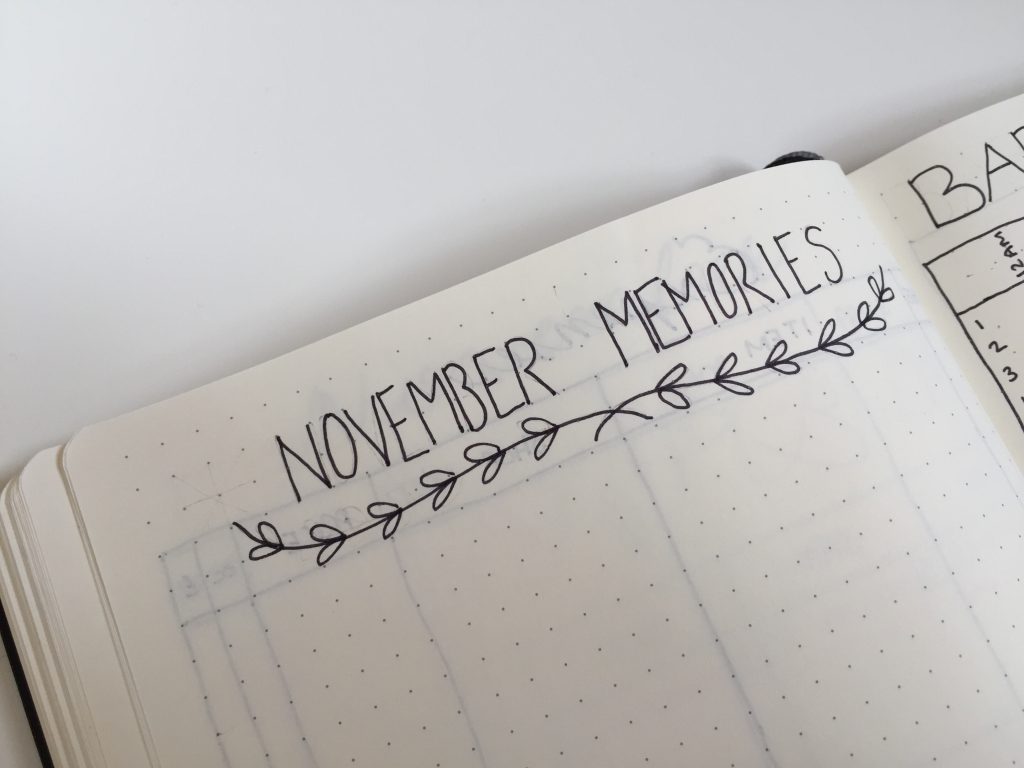 NOVEMBER MEMORIES
BA
12AM
1
2
3